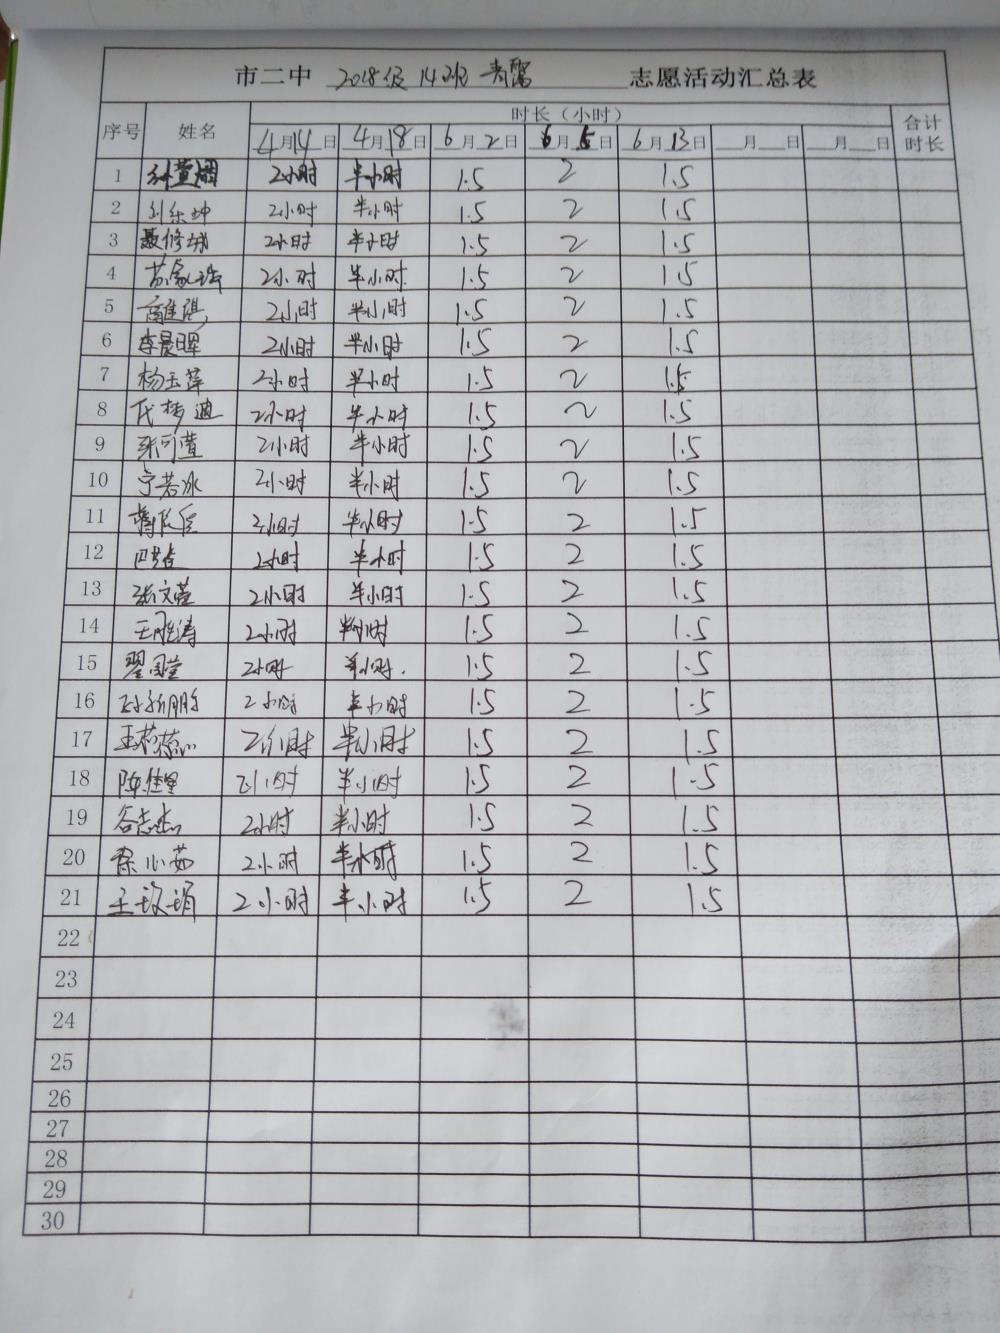 市二中 2018级 14班 志愿活动汇总表
序号 姓名 时长（小时） 合计时长
4月14日 4月18日 6月2日 6月5日 6月13日 月 日 月 日
1 2小时 半小时 1.5 2 1.5
2 2小时 半小时 1.5 2 1.5
3 2小时 半小时 1.5 2 1.5
4 2小时 半小时 1.5 2 1.5
5 2小时 半小时 1.5 2 1.5
6 李晨晖 2小时 半小时 1.5 2 1.5
7 杨玉萍 2小时 半小时 1.5 2 1.5
8 代梦迪 2小时 半小时 1.5 2 1.5
9 张可萱 2小时 半小时 1.5 2 1.5
10 宁若冰 2小时 半小时 1.5 2 1.5
11 2小时 半小时 1.5 2 1.5
12 2小时 半小时 1.5 2 1.5
13 张文萱 2小时 半小时 1.5 2 1.5
14 2小时 半小时 1.5 2 1.5
15 2小时 半小时 1.5 2 1.5
16 2小时 半小时 1.5 2 1.5
17 2小时 半小时 1.5 2 1.5
18 2小时 半小时 1.5 2 1.5
19 2小时 半小时 1.5 2 1.5
20 2小时 半小时 1.5 2 1.5
21 2小时 半小时 1.5 2 1.5
22
23
24
25
26
27
28
29
30